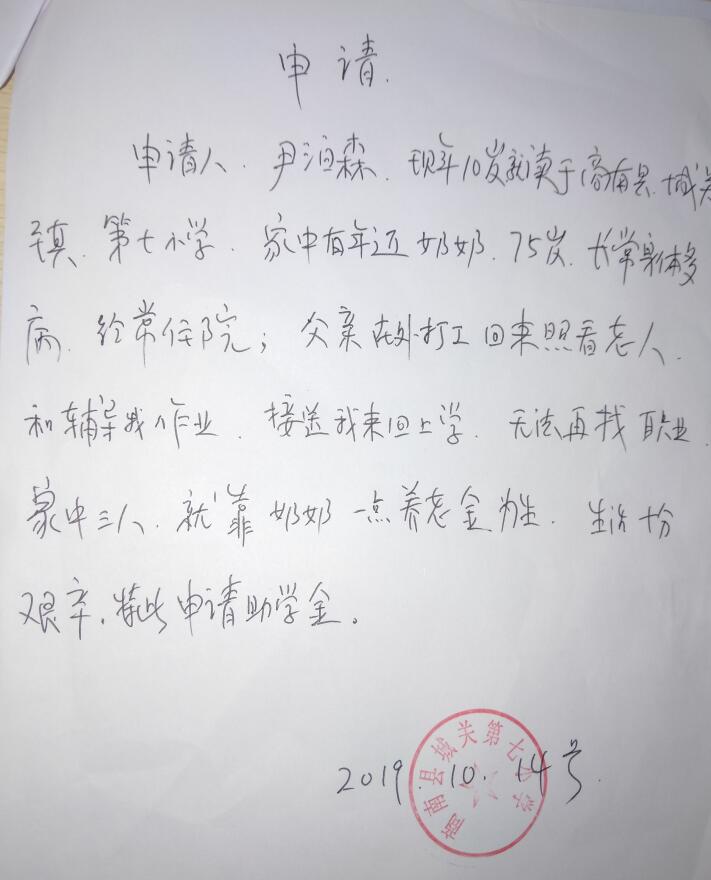 申请.
申请人.尹泊森.现年10岁就读于商南县.城关
镇.第七小学.家中有年迈奶奶.75岁.长常身体多
病.经常住院;父亲在外打工回来照看老人.
和辅导我作业.接送我来回上学.无法再找职业.
家中三人.就靠奶奶一点养老金为生.生活十分
艰辛.特此申请助学金。
商南县城关第七小学
2019.10.14号.